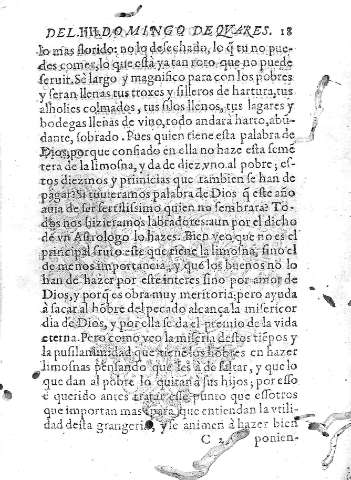 DEL IIII. DOMINGO DE QVARES. 18
lo mas florido: no lo desechado, lo q̃ tu no pue-
des comer, lo que està ya tan roto, que no puede
seruir. Se largo y magnifico para con los pobres
y seran llenas tus troxes y silleros de hartura, tus
alholies colmados, tus silos llenos, tus lagares y
bodegas llenas de vino, todo andara harto, abũ-
dante, sobrado. Pues quien tiene esta palabra de
Dios, porque confiado en ella no haze esta seme
tera de la limosna, y da de diez, vno al pobre; es-
tos diezinos y priinicias que tambien se han de
pagar? Si tuuieramos palabra de Dios q̃ este año
auia de ser fertilissimo quien no sembrara? To-
dos nos hizieramos labradores: aun por el dicho
de vn Astrologo lo hazes. Bien veo que no es el
principal fruto este que tiene la limosna, sino el
de menos importancia, y que los buenos no lo
han de hazer por este interes sino por amor de
Dios, y porq̃ es obra muy meritoria: pero ayuda
à sacar al hõbre del pecado alcança la misericor
dia de Dios, y por ella se da el premio de la vida
eterna. Pero como veo la miseria destos tiẽpos y
la pusilanimidad que tienẽ los hõbres en hazer
limosnas pensando que les à de faltar, y que lo
que dan al pobre lo quitan à sus hijos; por esso
è querido antes tratar este punto que essotros
que importan mas, para que entiendan la vtili-
dad desta grangeria, y se animen à hazer bien
C 2 ponien-